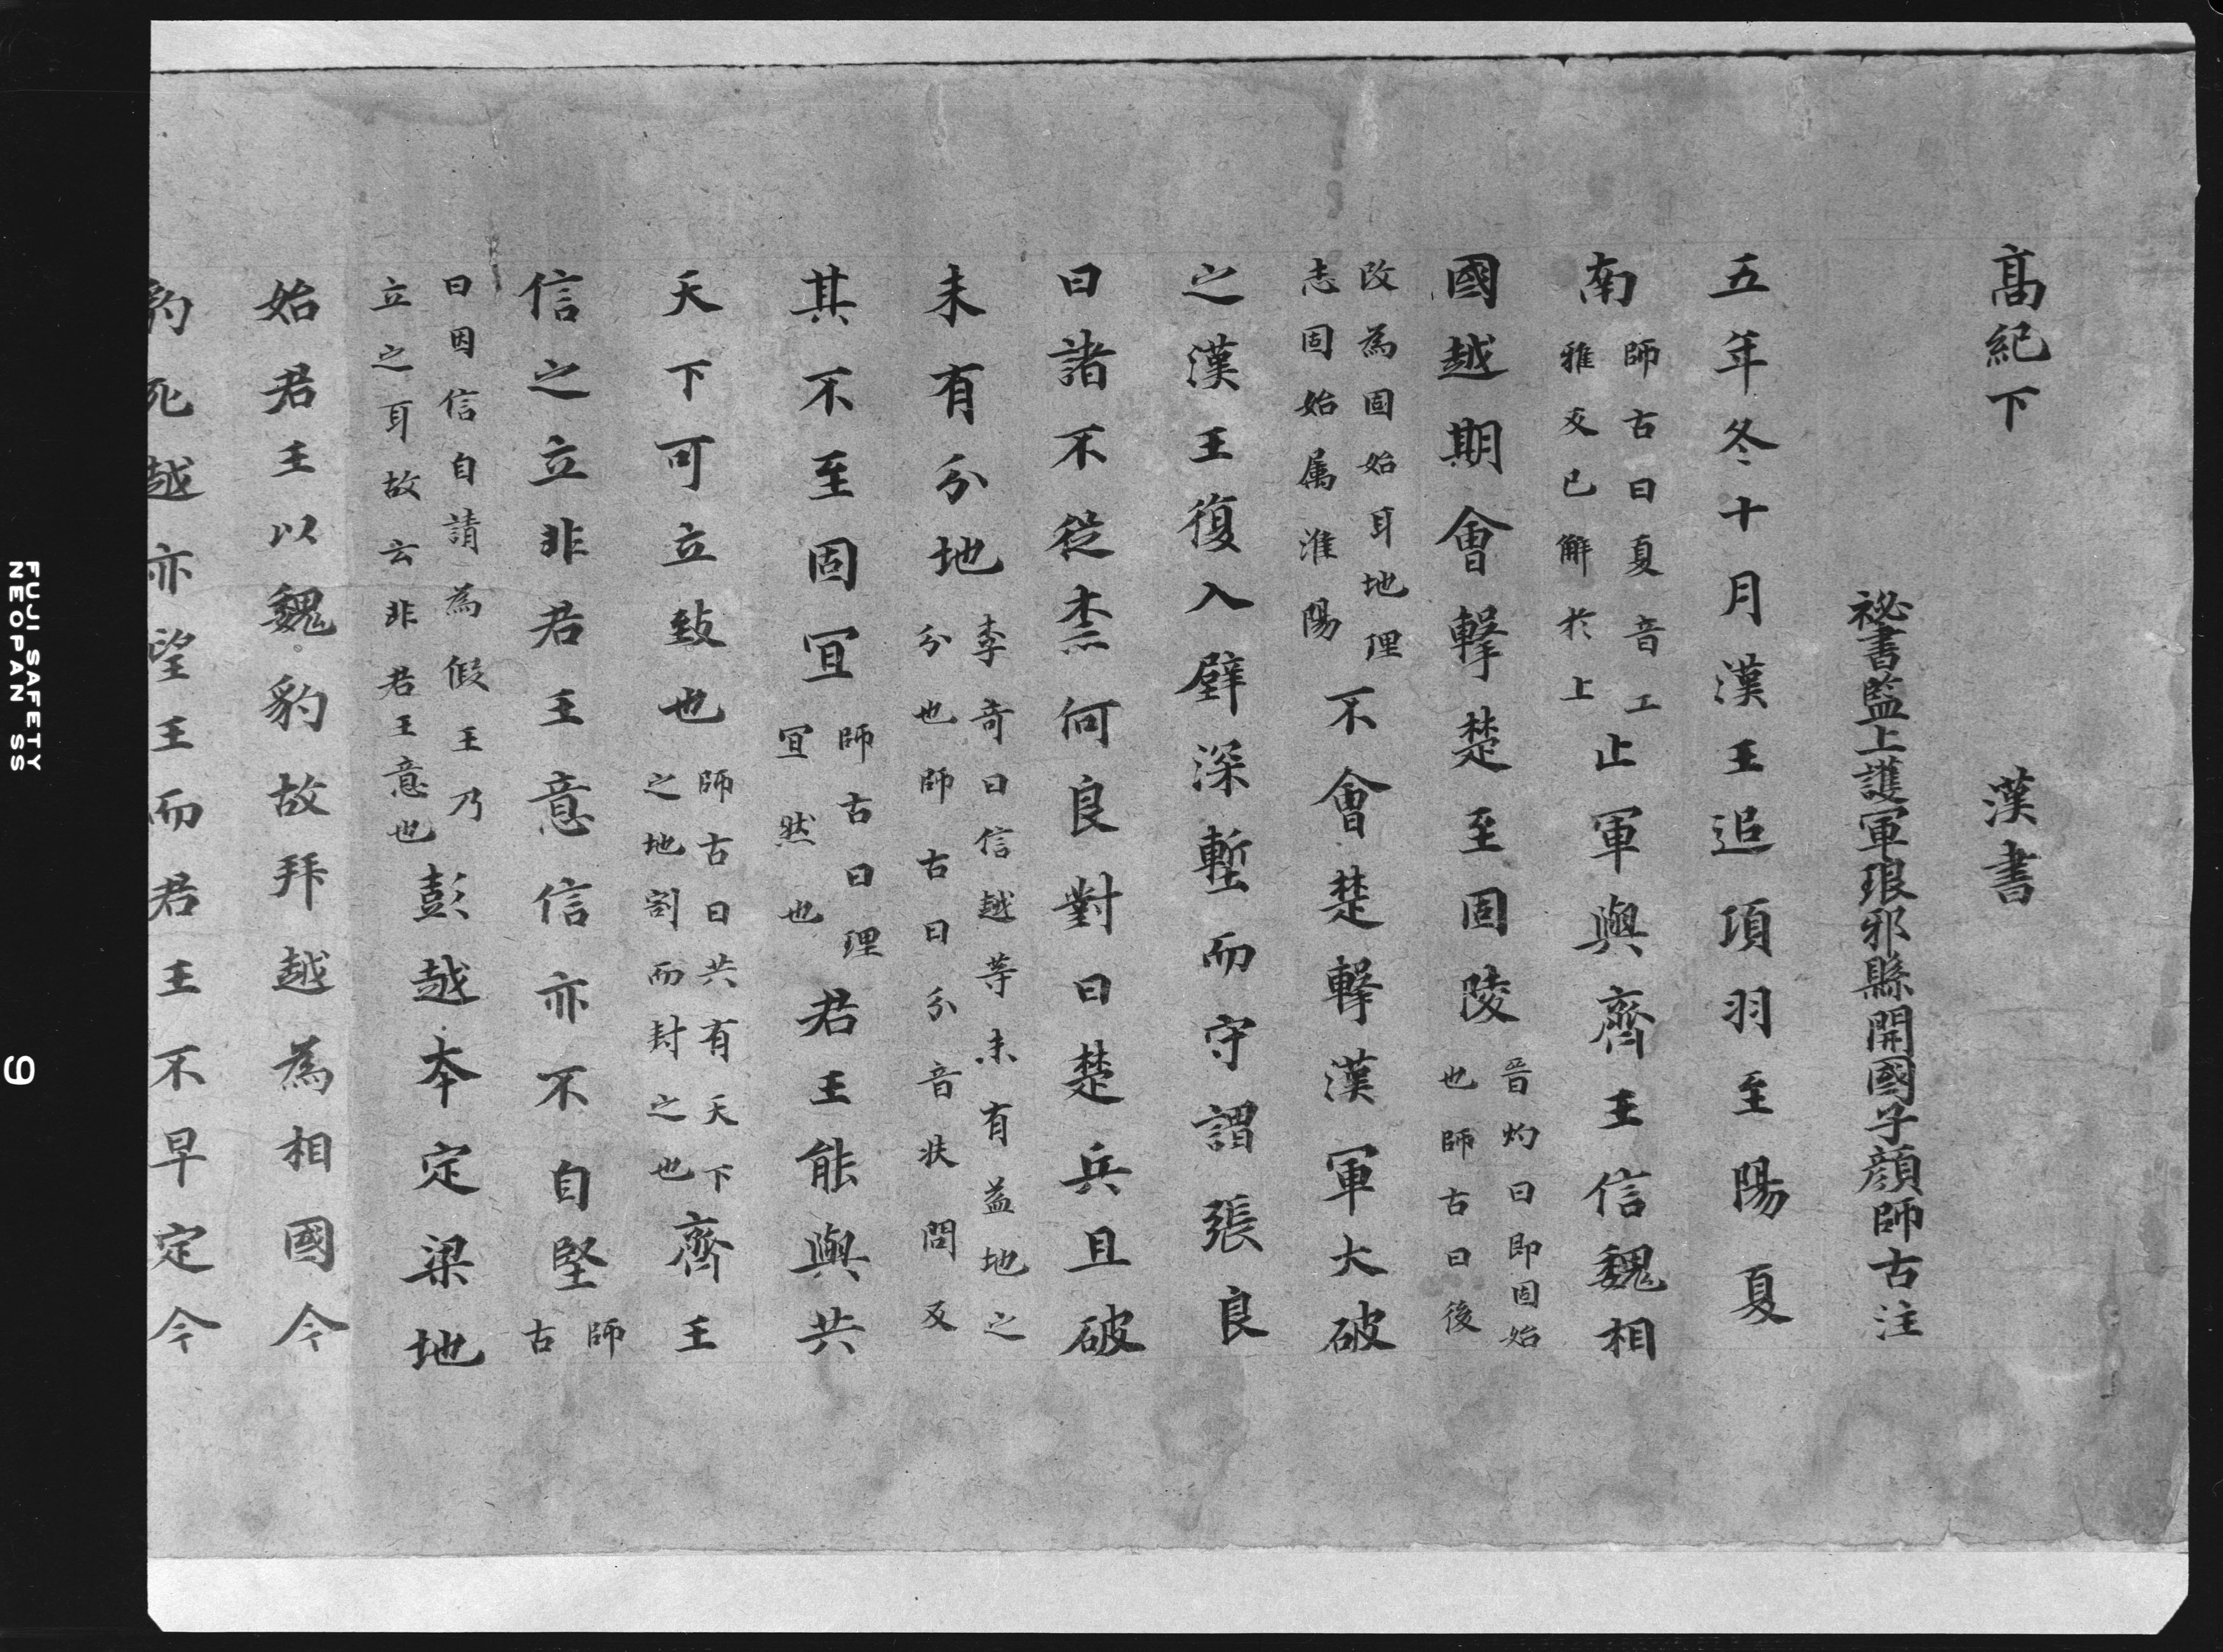 高紀下　漢書
祕書監上護軍琅邪縣開國子顏師古注
五年冬十月漢王追項羽至陽夏
南師古曰夏音工雅反已解於上止軍與齊王信魏相
國越期會擊楚至固陵晉灼曰即固始也師古曰後
改為固始耳地理志固始属淮陽不會楚擊漢軍大破
之漢王復入壁深塹而守謂張良
曰諸不從柰何良對曰楚兵且破
未有分地李奇曰信越等未有益地之分也師古曰分音扶問反
其不至固冝師古曰理冝然也君王能與共
天下可立致也師古曰共有天下之地割而封之也齊王
信之立非君王意信亦不自堅師古
曰因信自請為假王乃立之耳故云非君王意也彭越本定梁地
始君王以魏豹故拜越為相國今
豹死越亦望王而君王不早定今
FUJI SAFETY
NEOPAN SS
9